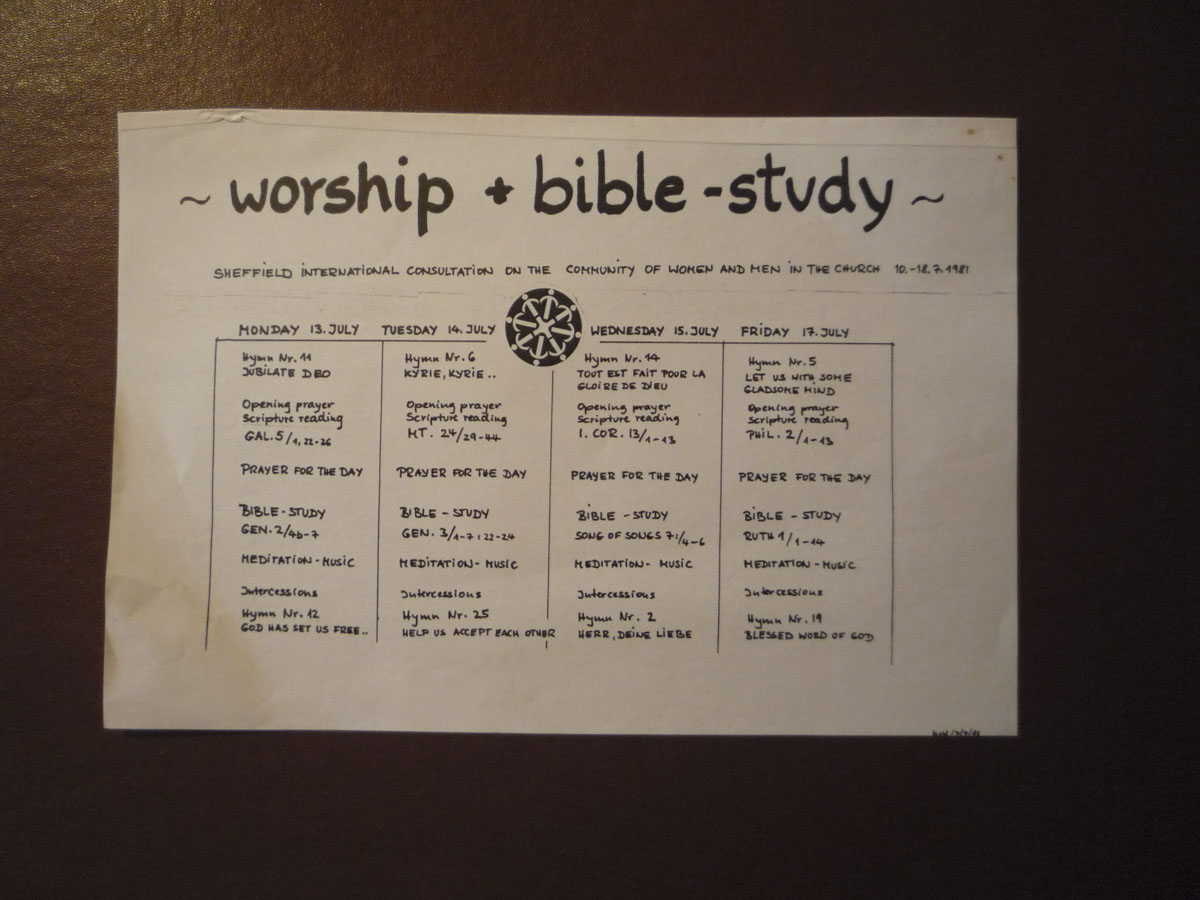 ~ worship + bible-study ~
SHEFFIELD INTERNATIONAL CONSULTATION ON THE COMMUNITY OF WOMEN AND MEN IN THE CHURCH 10.-18.7.1981
MONDAY 13.JULY
Hymn Nr. 11
JUBILATE DEO
Opening prayer
Scripture reading
GAL.5/1,22-26
PRAYER FOR THE DAY
BIBLE-STUDY
GEN.2/4b-7
MEDITATION-MUSIC
Intercessions
Hymn Nr. 12
GOD HAS SET US FREE..
TUESDAY 14.JULY
Hymn Nr. 6
KYRIE, KYRIE ..
Opening prayer
Scripture reading
MT. 24/29-44
PRAYER FOR THE DAY
BIBLE - STUDY
GEN. 3/1-7; 22-24
MEDITATION- MUSIC
Intercessions
Hymn Nr. 25
HELP US ACCEPT EACH OTHER
WEDNESDAY 15.JULY
Hymn Nr. 14
TOUT EST FAIT POUR LA
GLOIRE DE DIEU
Opening prayer
Scripture reading
I. COR. 13/1-13
PRAYER FOR THE DAY
BIBLE - STUDY
SONG OF SONGS 7:/4-6
MEDITATION- MUSIC
Intercessions
Hymn Nr. 2
HERR, DEINE LIEBE
FRIDAY 17.JULY
Hymn Nr. 5
LET US WITH SOME
GLADSOME MIND
Opening prayer
Scripture reading
PHIL. 2/1-13
PRAYER FOR THE DAY
BIBLE - STUDY
RUTH 1/1-14
MEDITATION -MUSIC
Intercessions
Hymn Nr. 19
BLESSED WORD OF GOD